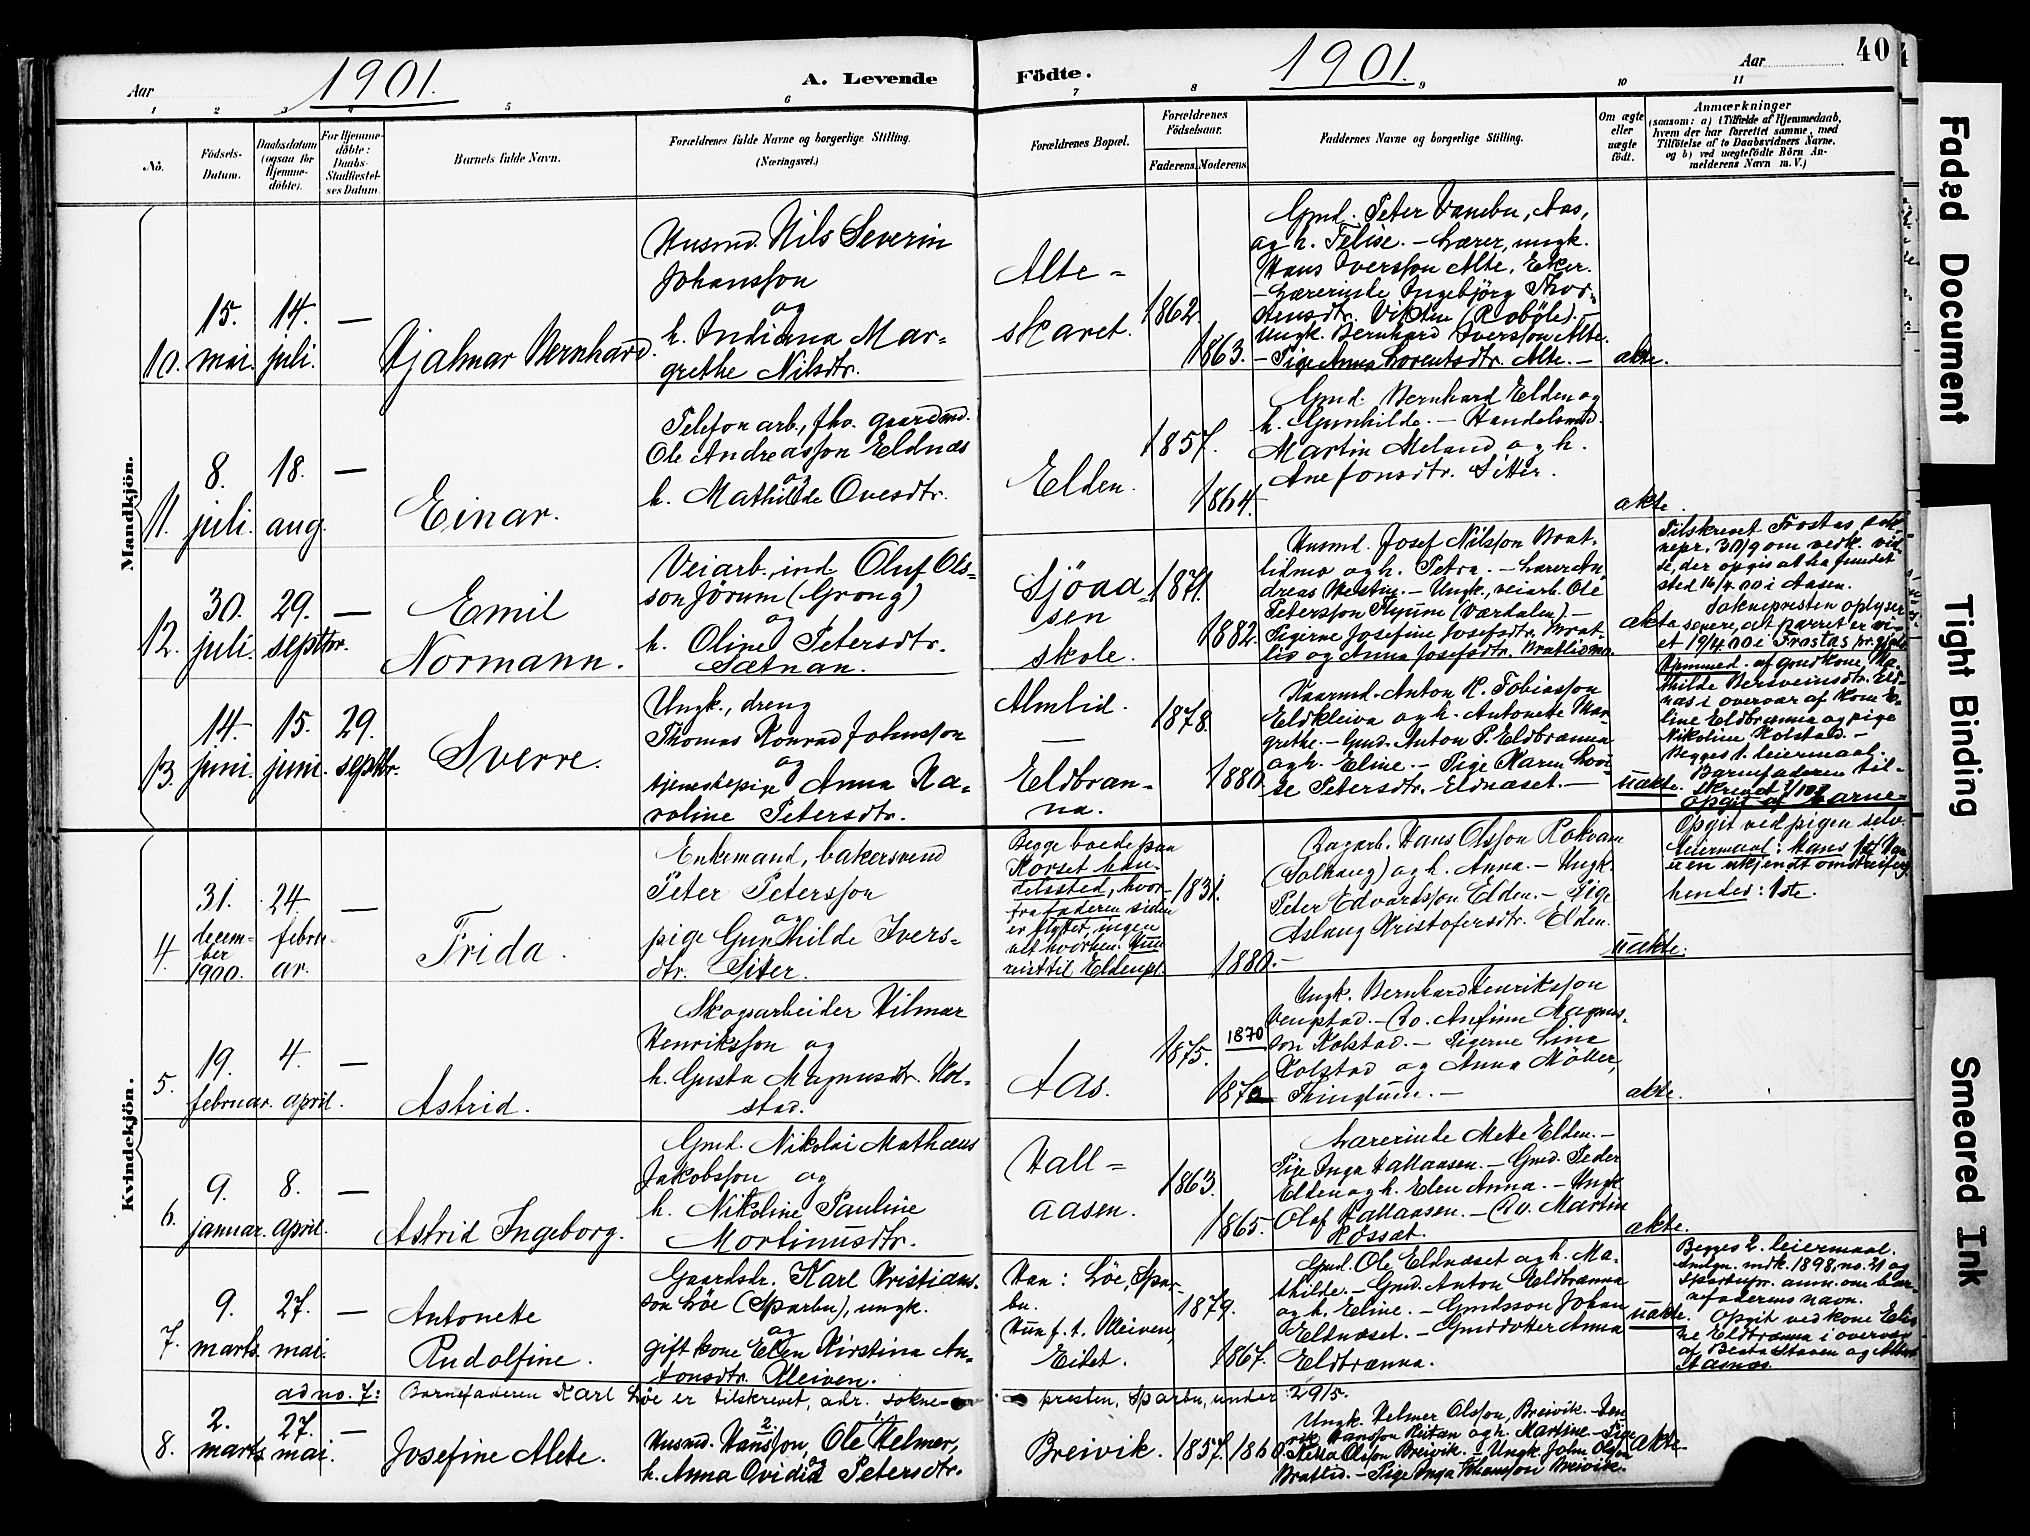 Aar
1901.
A. Levende
Födte.
1901.
Aar
40
1 2 3 4 5 6 7 8 9 10 11
No.
Födsels-
Datum.
Daabsdatum
(ogsaa for
Hjemme-
döbte).
For Hjemme-
döbte:
Daabs-
Stadfæstel-
ses Datum.
Barnets fulde Navn.
Forældrenes fulde Navne og borgerlige Stilling.
(Næringsvei.)
Forældrenes Bopæl.
Forældrenes
Födselsaar.
Faderens. Moderens.
Faddernes Navne og borgerlige Stilling.
Om ægte
eller
uægte
födt.
Anmærkninger
(saasom: a) i Tilfælde af Hjemmedaab,
hvem der har forrettet samme, med
Tilföielse af to Daabsvidners Navne,
og b) ved uægtefödte Börn An-
melderens Navn m. V.)
Mandkjön.
10.
15.
mai.
14.
juli.
—
Hjalmar Bernhard.
Husmd. Nils Severin
Johansson
og
h. Indiana Mar-
grethe Nilsdtr.
Alte-
skaret.
1862
1863.
Gmd. Peter Vanebu, Aas,
og h. Felise. — Lærer, ungk.
Hans Iversson Alte, Eker.
— Lærerinde Ingebjörg Thor-
stensdtr. Vikten (Roböle). —
Ungk. Bernhard Iversson Alte.
— Pige Anna Lorentsdtr. Alte. —
ækte.
11.
8.
juli.
18.
aug.
—
Einar.
Telefonarb., fhv. gaardmd.
Ole Andreasson Eldnæs
og
h. Mathilde Ovesdtr.
Elden.
1857.
1864.
Gmd. Bernhard Elden og
h. Gunhilde. — Handelsmd.
Martin Meland og h.
Ane Jonsdtr. Sitter.
ækte.
12.
30.
juli.
29.
septbr.
—
Emil
Normann.
Veiarb., ind. Oluf Ols-
son Jörum (Grong)
og
h. Oline Petersdtr.
Sætnan.
Sjöaa-
sen
skole.
1871.
1882.
Husmd. Josef Nilsson Brat-
lidmo og h. Petra. — Lærer An-
dreas Mostin. — Ungk., veiarb. Ole
Petersson Flyum (Værdalen) —
Pigerne Josefine Josefsdtr. Brat-
lid og Anna Josefsdtr. Bratlidmo.
ækte
Tilskrevet Frostas sok-
nepr. 30/9 om vedk. vid-
se, der opgis at ha fundet
sted 16/4.00 i Aasen.
Soknepresten oplyser
senere, at parret er vi-
et 19/4.00 i Frostas pr.gjeld.
13.
14.
juni.
15.
juni.
29.
septbr.
Sverre.
Ungk., dreng
Thomas Konrad Johnsson
og
tjenestepige Anna Ka-
roline Petersdtr.
Almlid.
—
Eldbran-
na.
1878.
1880.
Kaarmd. Anton K. Tobiasson
Eldkleiva og h. Antonete Mar-
grethe. — Gmd. Anton P. Eldbranna
og h. Eline. — Pige Karen Lovi-
se Petersdtr. Eldnæset. —
uækte.
Hjemmed. af gmdkone Ma-
thilde Bersveinsdtr. Eld-
næs i overvær af kone E-
line Eldbranna og pige
Nikoline Kolstad. —
Begges 1. leiermaal.
Barnefaderen til-
skrevet
opgit af barne-
Kvindekjön.
4.
31.
decem-
ber
1900.
24
febru-
ar.
—
Frida.
Enkemand, bakersvend
Peter Petersson
og
pige Gunhilde Ivers-
dtr. Siter.
Begge boede paa
Korset han-
delssted, hvor-
fra faderen siden
er flyttet, ingen
vet hvorhen. Hun
reist til Elden pl.
1831.
1880.
Bagarb. Hans Olsson Rokvam
(Solhaug) og h. Anna. — Ungk.
Peter Edvardsson Elden. — Pige
Aslaug Kristofersdtr. Elden.
—
uækte.
Opgit ved pigen selv.
Leiermaal: hans
er en ukjendt omstreifer,
hendes: 1ste.
5.
19.
februar.
4.
april.
—
Astrid.
Skogsarbeider Hilmar
Henriksson og
h. Gusta Magnusdtr. Kol-
stad.
Aas.
1875.
1870
Ungk. Bernhard Henriksson
Vengstad. — Do. Anfinn Magnus-
son Kolstad. — Pigerne Lina
Kolstad og Anna Möller,
Thinglum. —
ækte.
6.
9.
januar.
8.
april.
—
Astrid Ingeborg.
Gmd. Nikolai Mathæus
Jakobsson og
h. Nikoline Pauline
Mortinusdtr.
Hall-
aasen.
1863.
1865.
Lærerinde Mette Elden. —
Pige Inga Hallaasen. — Gmd. Peder
Elden og h. Elen Anna. — Ungk.
Olaf Hallaasen. — Do. Martin
Rösset.
ækte.
7.
9.
marts.
27.
mai.
—
Antonete
Rudolfine.
Gaardsdr. Karl Kristians-
son Löe (Sparbu), ungk.
og
gift kone Elen Kirstina An-
tonsdtr. Kleiven.
Han: Löe, Spar-
bu.
Hun f. t. Kleiven,
Eitet.
1879.
1867.
Gmd. Ole Eldnæset og h. Ma-
thilde. — Gmd. Anton Eldbranna
og h. Eline. — Gmdsson Johan
Eldnæset. — Gmddotter Anna
Eldbranna.
uækte.
Begges 2. leiermaal.
mdk. 1898, no. 21 og
anm. om bar-
nefaderens navn.
Opgit ved kone Eli-
ne Eldbranna i overvær
af Beata Staven og Albert
Aamos.
ad no. 7: Barnefaderen Karl Löe er tilskrevet, adr. sokne-
presten, Sparbu, under 29/5.
8.
2.
marts
27.
mai.
—
Josefine Alete.
Husmd. Hansson, Ole Helmer,
h. Anna Ovidia Petersdtr.
Breivik.
1857.
1860.
Ungk. Helmer Olsson, Breivik. — Hen-
rik Hansson Reitan og h. Martine. — Pige
Petra Olsson Breivik. — Ungk. John Olsson
Bratlid. — Pige Inga Johansson Breivik.
ækte.
Faded Document
Tight Binding
Smeared Ink